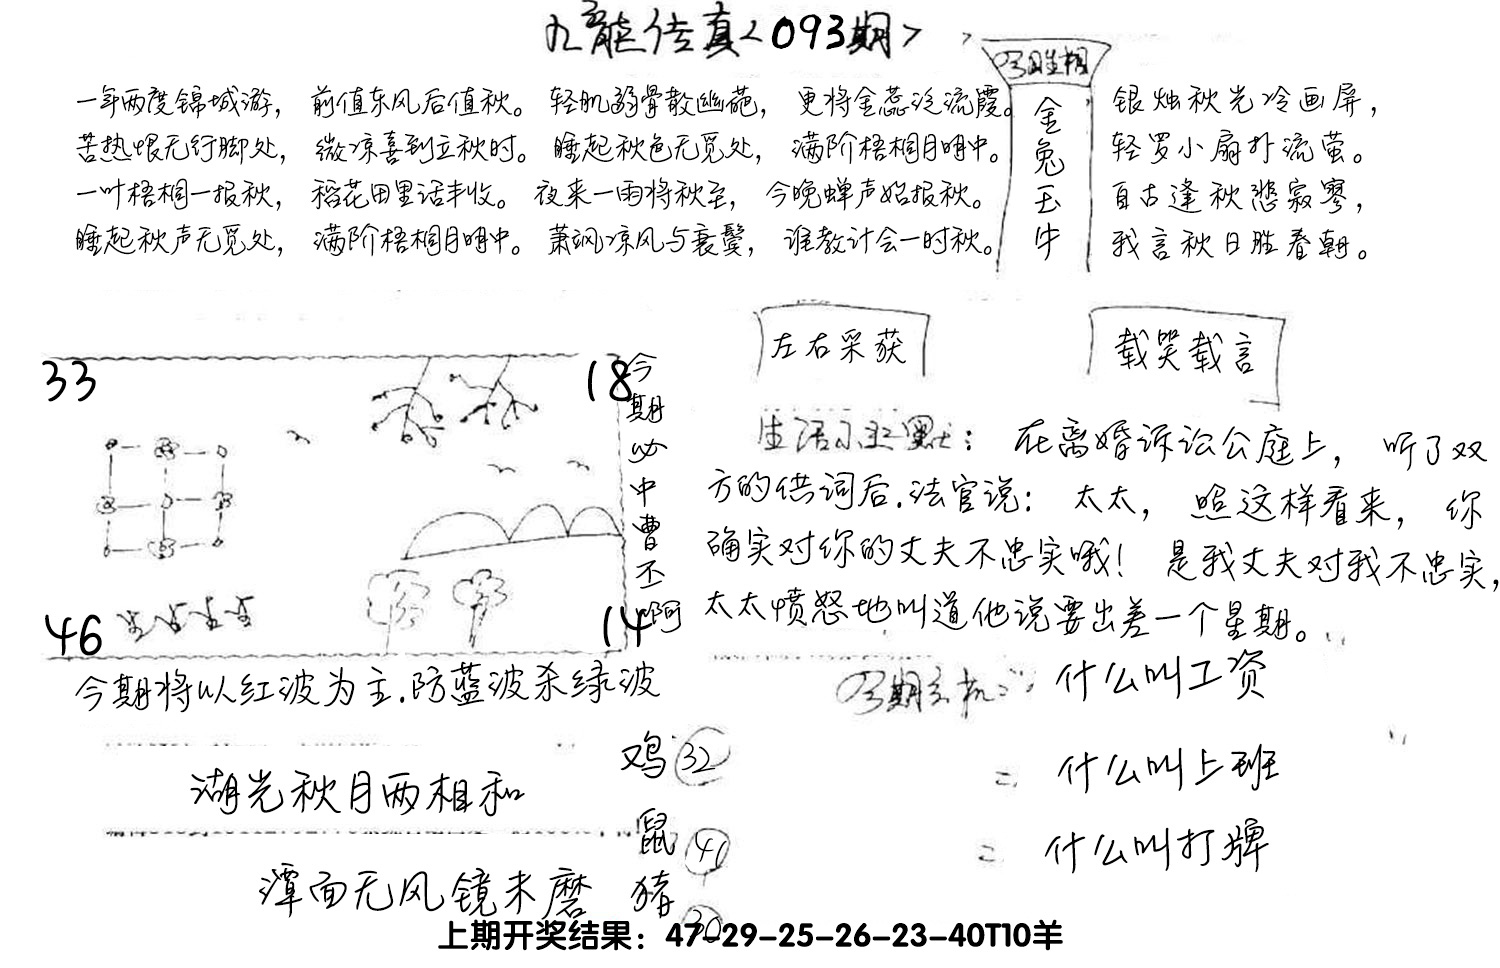 九龙传真<093期>
今日生相
一年两度锦城游，前值东风后值秋。轻肌弱骨散幽葩，更将金蕊泛流霞。
苦热恨无行脚处，微凉喜到立秋时。睡起秋色无觅处，满阶梧桐月明中。
一叶梧桐一报秋，稻花田里话丰收。夜来一雨将秋至，今晚蝉声始报秋。
睡起秋声无觅处，满阶梧桐月明中。萧飒凉风与衰鬓，谁教计会一时秋。
金兔玉牛
银烛秋光冷画屏，
轻罗小扇扑流萤。
自古逢秋悲寂寥，
我言秋日胜春朝。
33
18
46
14
今期必中曹丕啊
左右采获
载笑载言
生活小幽默：在离婚诉讼公庭上，听了双
方的供词后.法官说：太太，照这样看来，你
确实对你的丈夫不忠实哦！是我丈夫对我不忠实，
太太愤怒地叫道他说要出差一个星期。
今期将以红波为主.防蓝波杀绿波
今期玄机：什么叫工资
什么叫上班
什么叫打牌
湖光秋月两相和
潭面无风镜未磨
鸡 32
鼠 41
猪 30
上期开奖结果：47-29-25-26-23-40T10羊